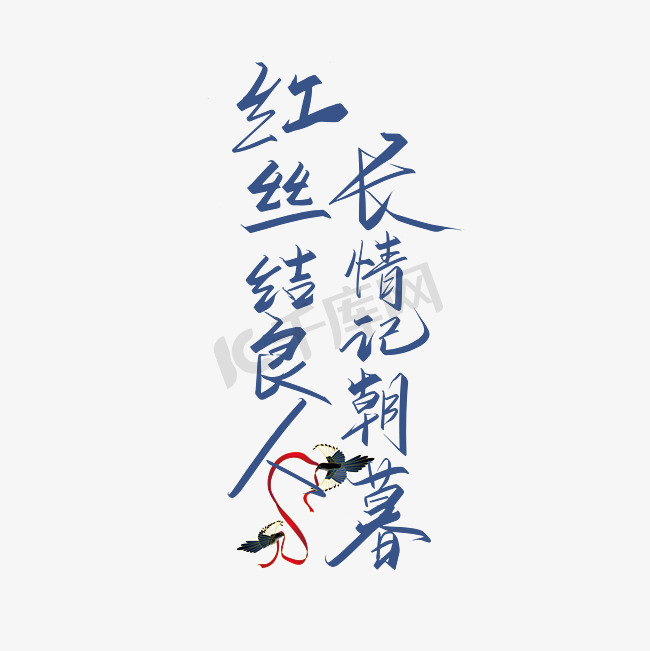 红丝结良人
长情记朝暮
千库网